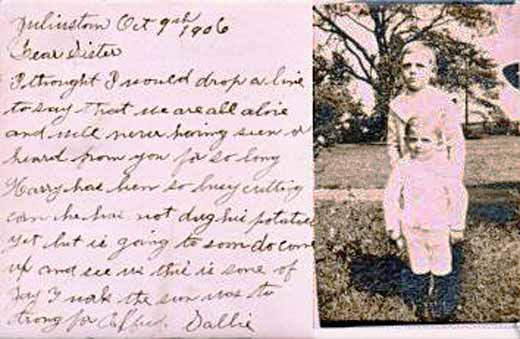 Julinstom Oct 9th 1906
Dear Sister
I thought I would drop a line
to say that we are all alive
and well never having seen or
heard from you for so long
Harry has ben so busy cutting
corn he has not dug his potatoes
yet but is going to soon do come
up and see us this is some of
day I the sun was to
strong for Sallie